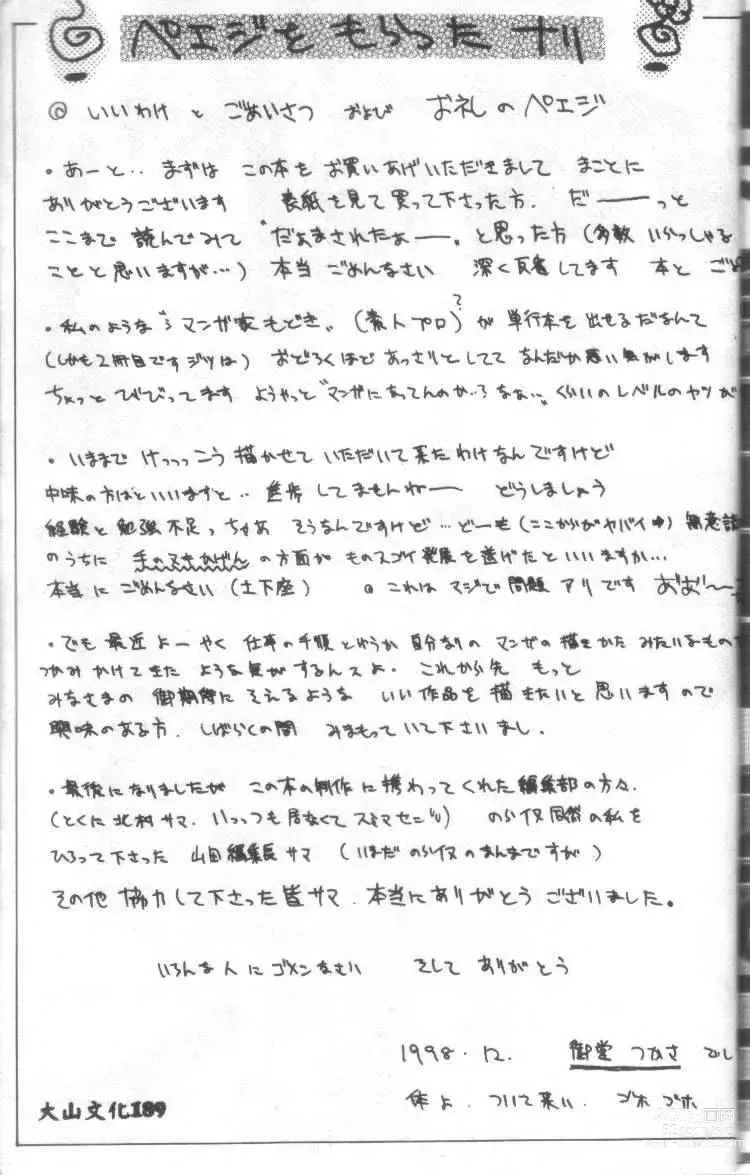 ペエジをもらったナリ
@ いいわけと ごあいさつ および お礼のペエジ
・あーと‥ まずは この本を お買いあげいただきまして まことに
ありがとうございます 表紙を見て買って下さった方. だ――っと
ここまで 読んでみて "だぁまされたぁ――。と思った方 (多数 いらっしゃる
ことと思いますが…) 本当 ごめんなさい 深く反省してます 本と
・私のような マンガ家もどき。(素人プロ)?が 単行本を出せるだなんて
(しかも2冊目です ジツは) おどろくほど あっさりとしてて なんだか悪い気がします
ちょっと びびってます ようやっと "マンガになってんのか‥ なぁ…„ くらいの レベルのヤツが
・いままで けっっっこう 描かせて いただいて来たわけなんですけど
中味の方はといいますと‥ 進歩 してませんねー どうしましょう
経験と勉強不足っちゃあ そうなんですけど… どーも(ここからがヤバイ
のうちに 手のヌキかげん の方面が ものスゴイ発展を遂げたといいますか…
本当に ごめんなさい (土下座) @ これは マジで問題 アリです
・でも 最近 よーやく 仕事の手順というか 自分なりの マンガの描きかた みたいなもの
つかみかけてきた ような気がするんスよ. これから先 もっと
みなさまの 御期待に そえるような いい作品を描きたいと思いますので
興味のある方. しばらくの間 みまもっていて下さいまし.
・最後になりましたが この本の制作に携わってくれた編集部の方々.
(とくに北村サマ. いっつも居なくてスミマセン) のらイヌ同然の私を
ひろって下さった 山田編集長サマ (いまだ のらイヌのまんまですが)
その他 協力して下さった皆サマ. 本当にありがとうございました。
いろんな人にゴメンなさい そして ありがとう
1998.12. 御堂 つかさ でし
体よ. ついて来い. ゴホ ゴホ
大山文化189